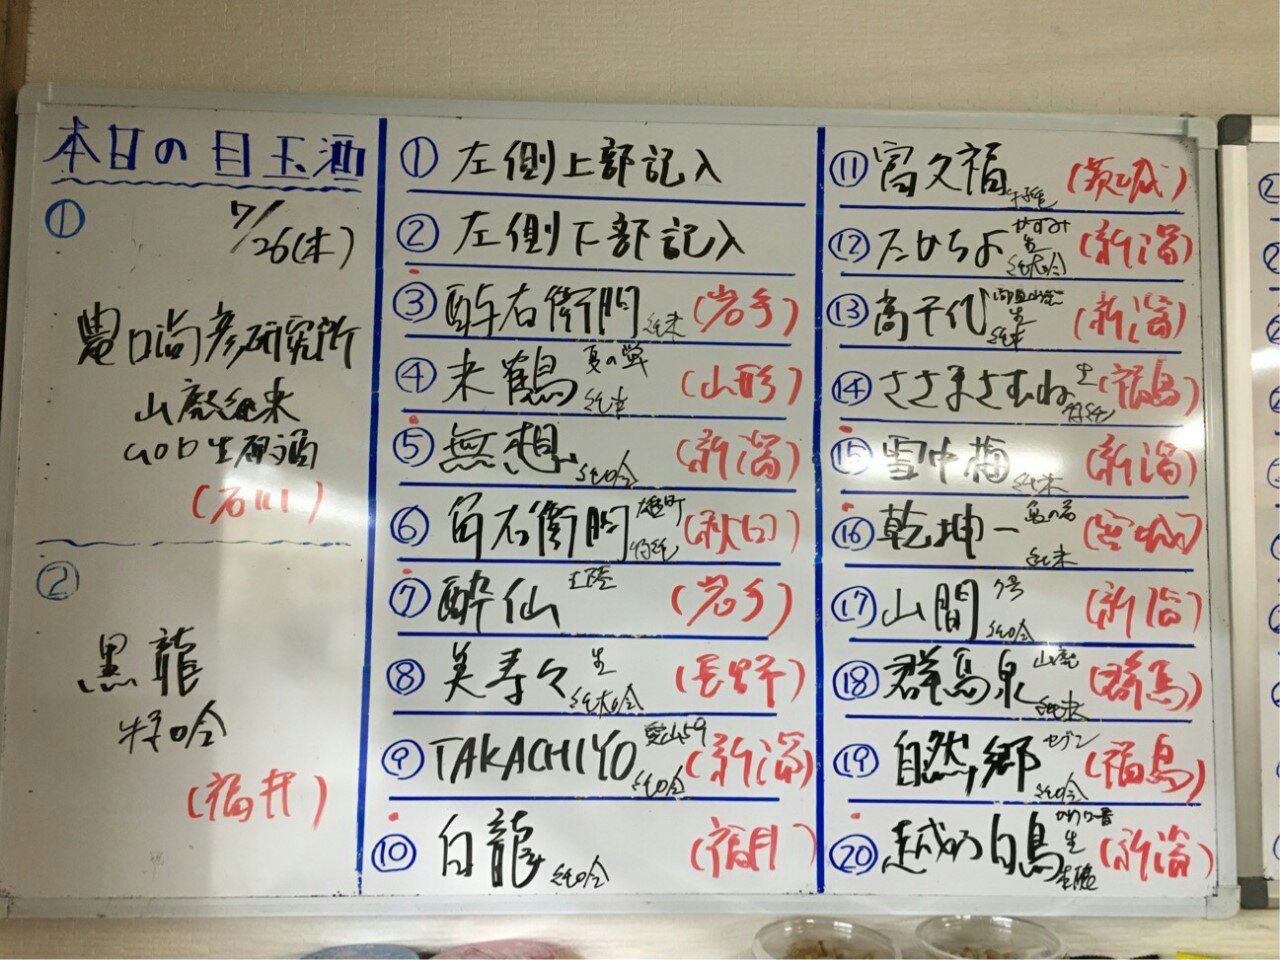 本日の目玉酒
①
7/26(木)
農口尚彦研究所
山廃純米
生原酒
(石川)
②
黒龍
特吟
(福井)
① 左側上部記入
② 左側下部記入
③ 酉与右衛門 純米 (岩手)
④ 米鶴 夏の 純米 (山形)
⑤ 無想 純吟 (新潟)
⑥ 角右衛門 雄町 特純 (秋田)
⑦ 酔仙 (岩手)
⑧ 美寿々 生 純大吟 (長野)
⑨ TAKACHIYO 愛山59 純吟 (新潟)
⑩ 白龍 純吟 (福井)
⑪ 富久福 特純 (茨城)
⑫ たかちよ かすみ 生 純大吟 (新潟)
⑬ 高千代 生 純米 (新潟)
⑭ ささまさむね 生 特純 (福島)
⑮ 雪中梅 純米 (新潟)
⑯ 乾坤一 純米 (宮城)
⑰ 山間 純吟 (新潟)
⑱ 群馬泉 山廃 純米 (群馬)
⑲ 自然郷 セブン 純吟 (福島)
⑳ 越の白鳥 生 (新潟)